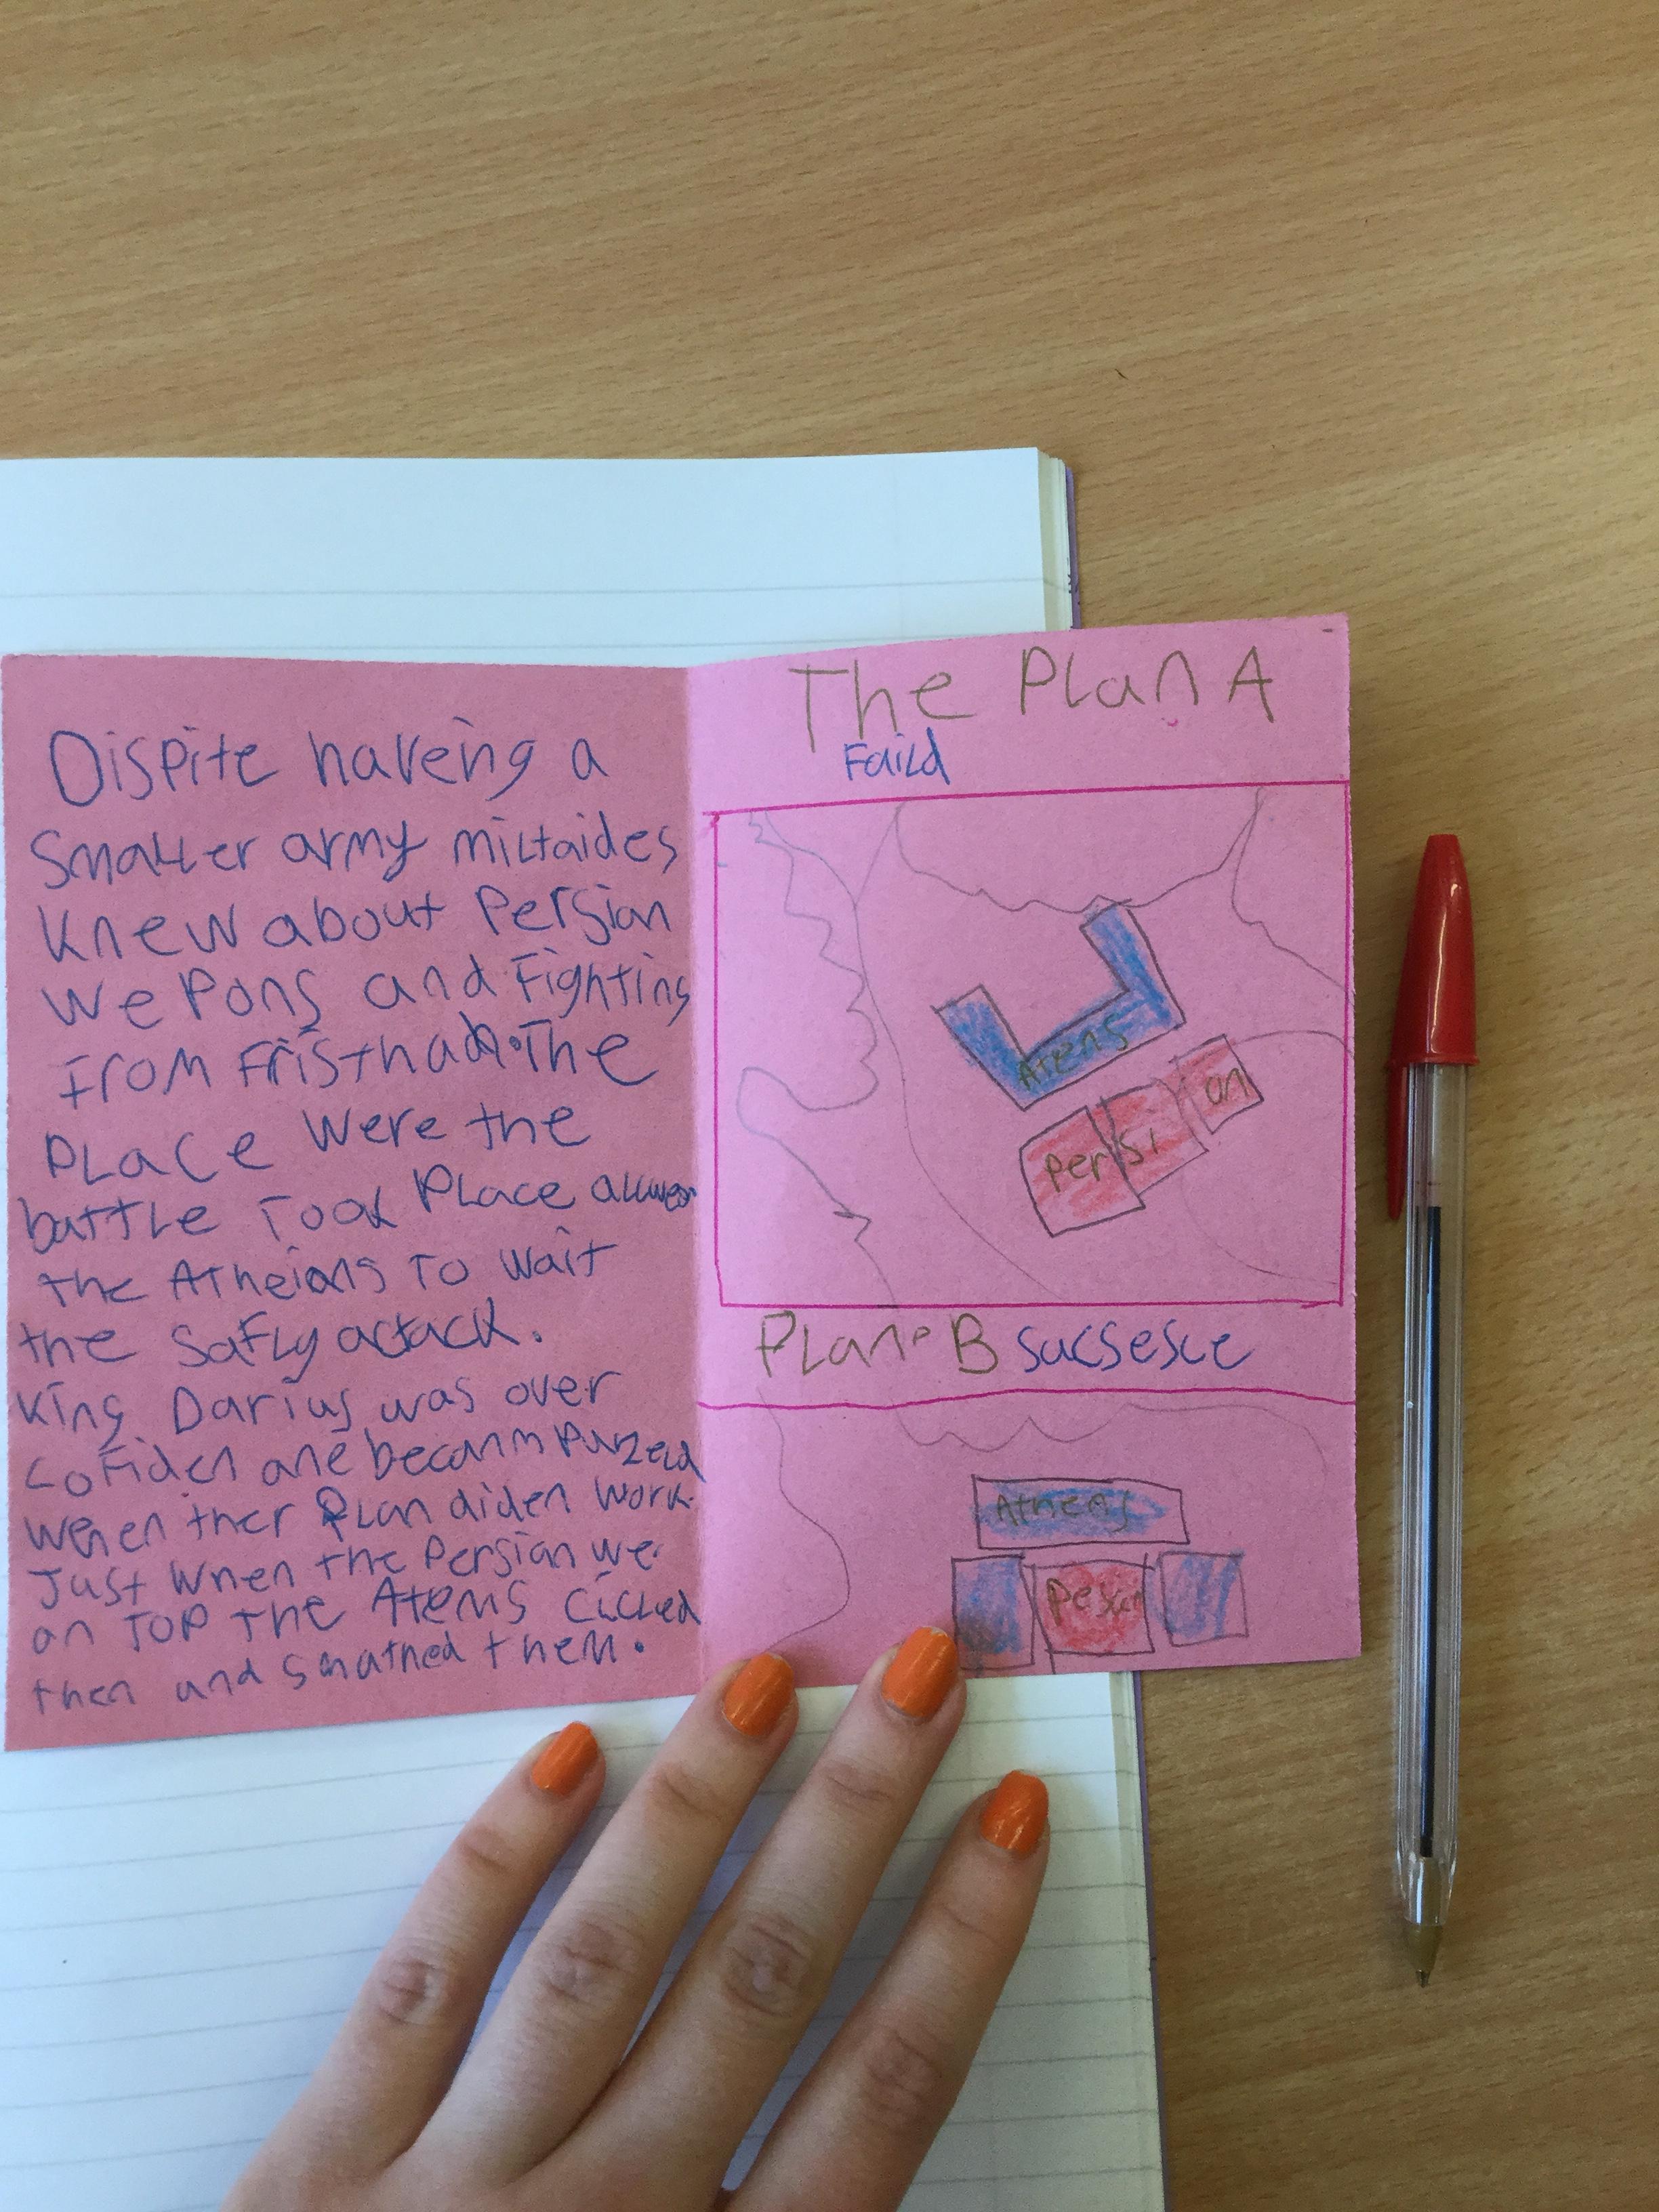 Dispite haveing a
smaller army miltaides
knew about Persian
wepons and Fighting
From Fristhadn. The
PLace were the
battle Took Place
the Atheians To wait
the SaFly attack.
King Darius was over
coFiden ane becanm Puzzeld
wenen ther PLan diden work.
Just when the Persian we
on Top the Atens circled
then and smathed them.
The PLan A
FaiLd
Atens
Persi an
PLan B sucsesce
Athens